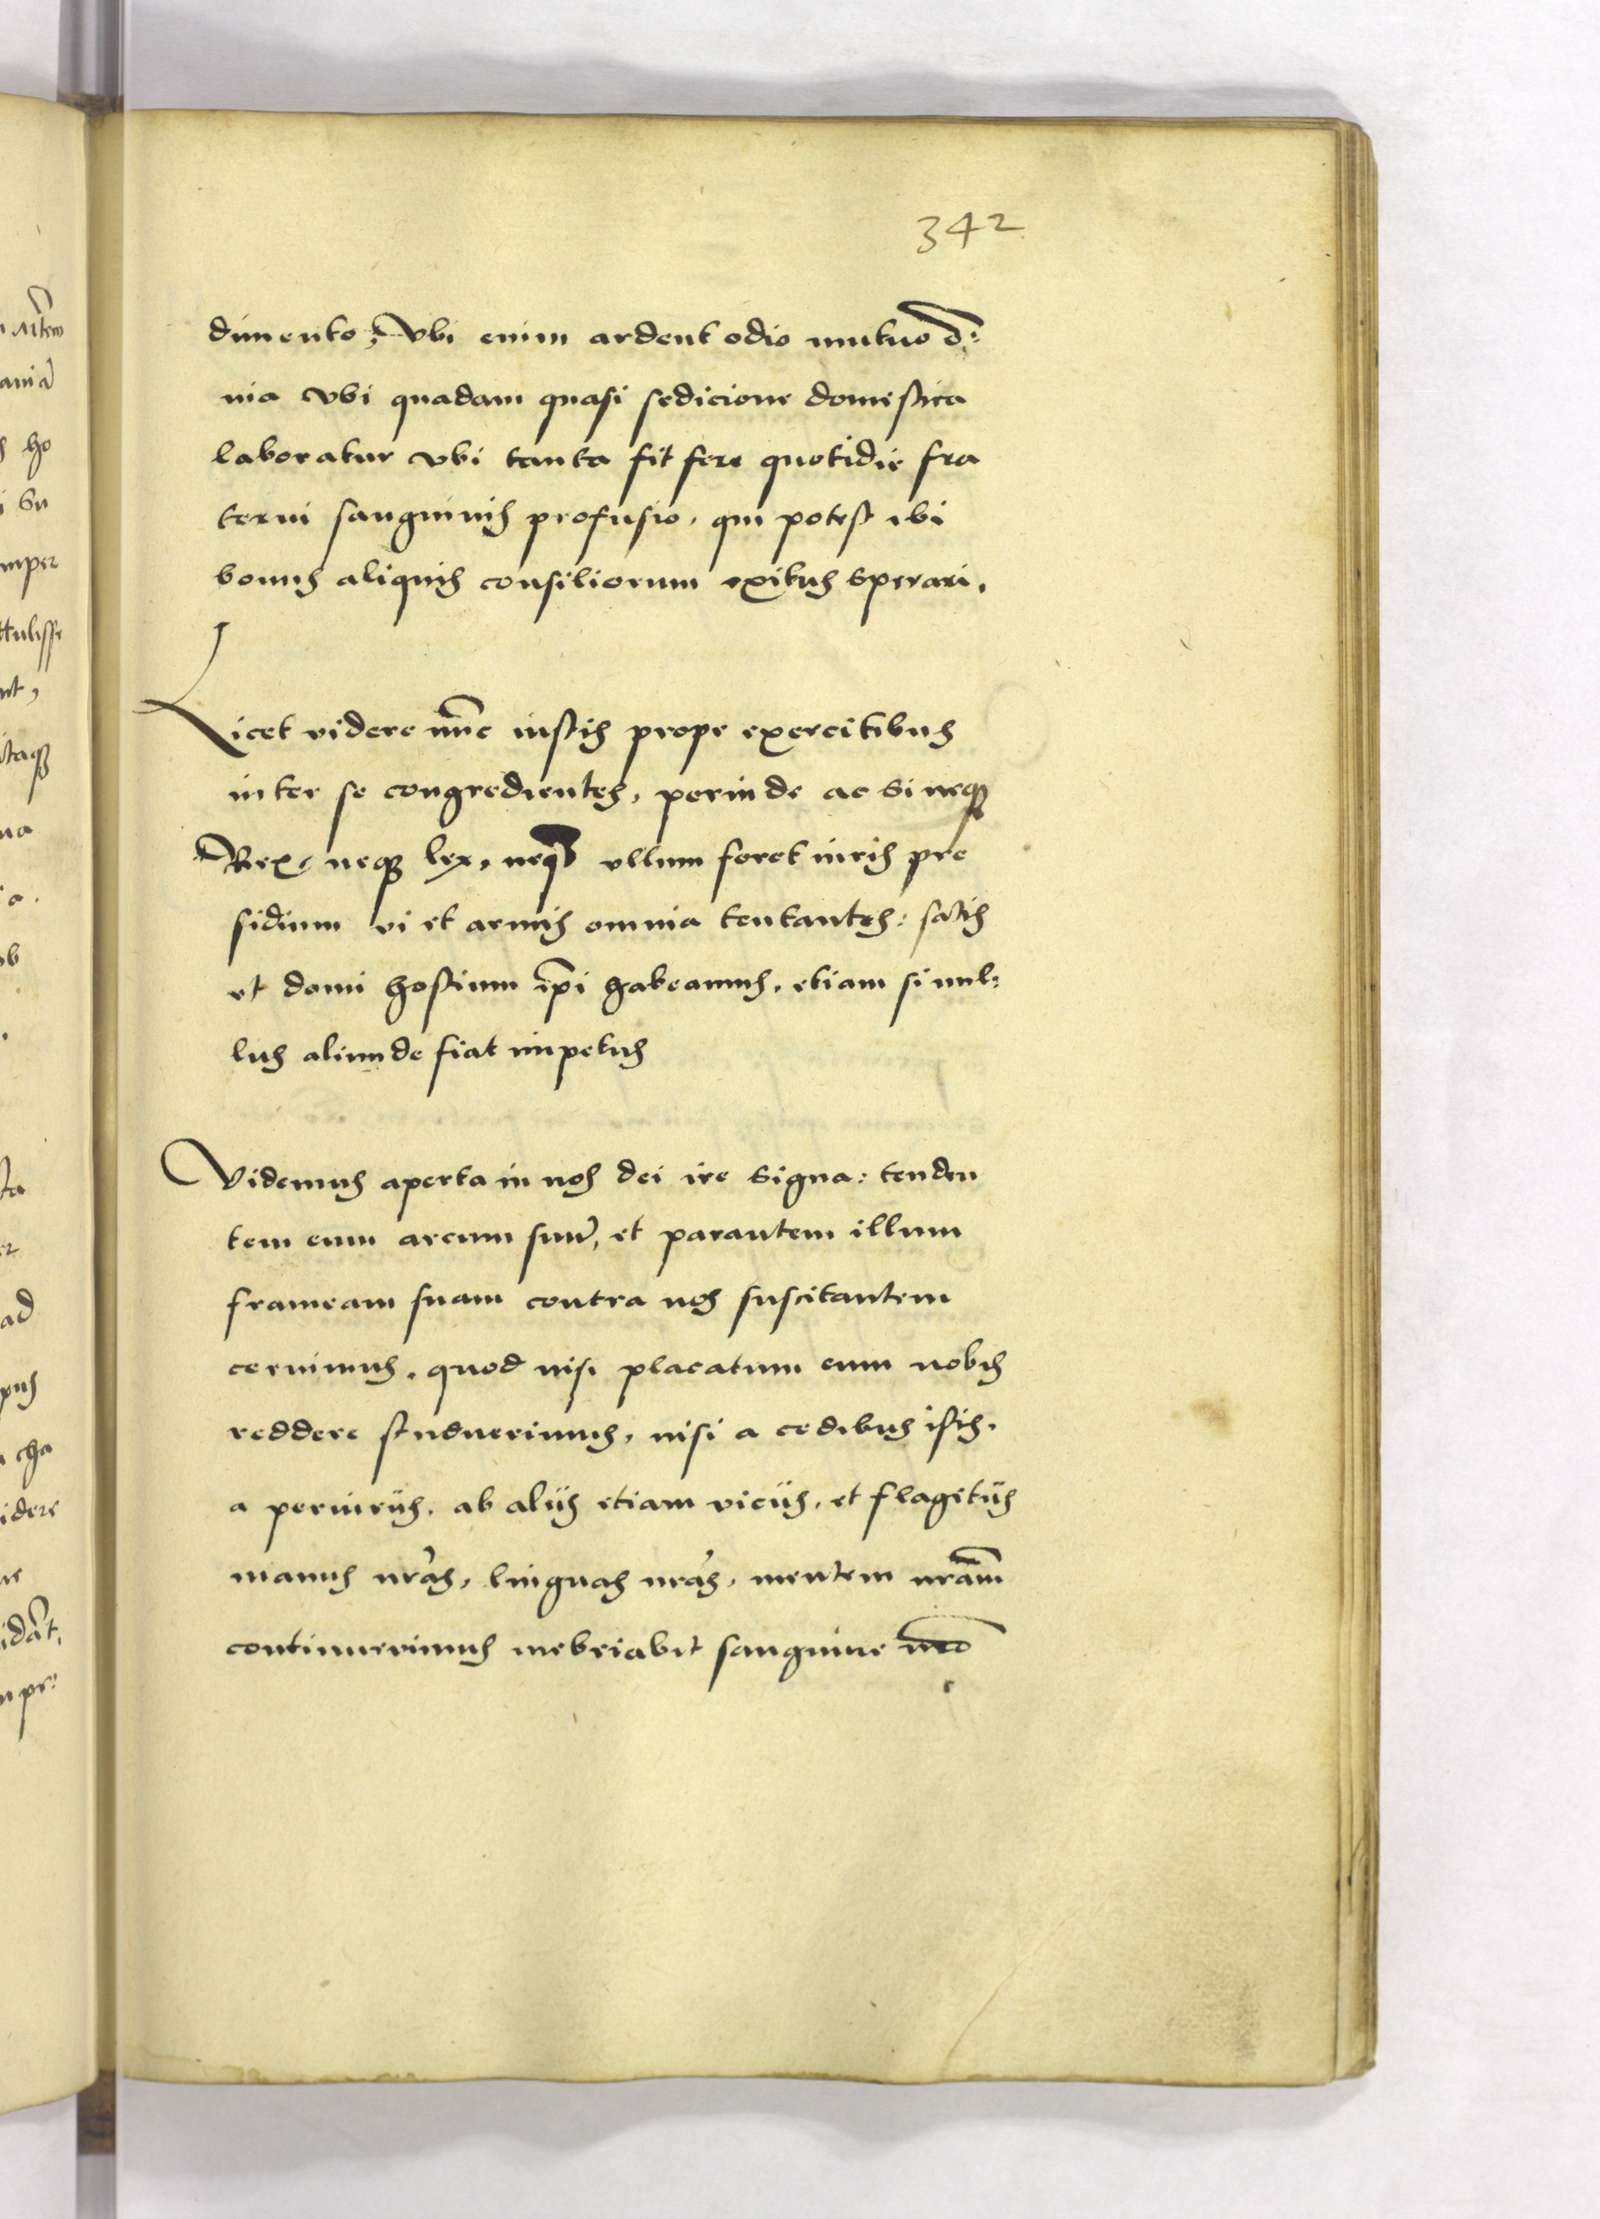 342
dimento, Vbi enim ardent odio mutuo o͂:
nia vbi quadam quasi sedicione domestica
laboratur vbi tanta fit fere quotidie fra
terni sanguinis profusio, qui potest ibi
bonus aliquis consiliorum exitus sperari.
Licet videre nūc iustis prope exercitibus
inter se congredientes, perinde ac si neqꝫ
Rex, neqꝫ lex, neqꝫ vllum foret iuris pre
sidium vi et armis omnia tentantes: satis
et domi hostium ip̄i habeamus, etiam si nul:
lus aliunde fiat impetus
Videmus aperta in nos dei ire signa: tenden
tem eum arcum suū, et parantem illum
frameam suam contra nos suscitantem
cernimus, quod nisi placatum eum nobis
reddere studuerimus, nisi a cedibus istis,
a periuriis, ab aliis etiam viciis, et flagitiis
manus nr̄as, linguas nr̄as, mentem nr̄am
continuerimus inebriabit sanguine nr̄o